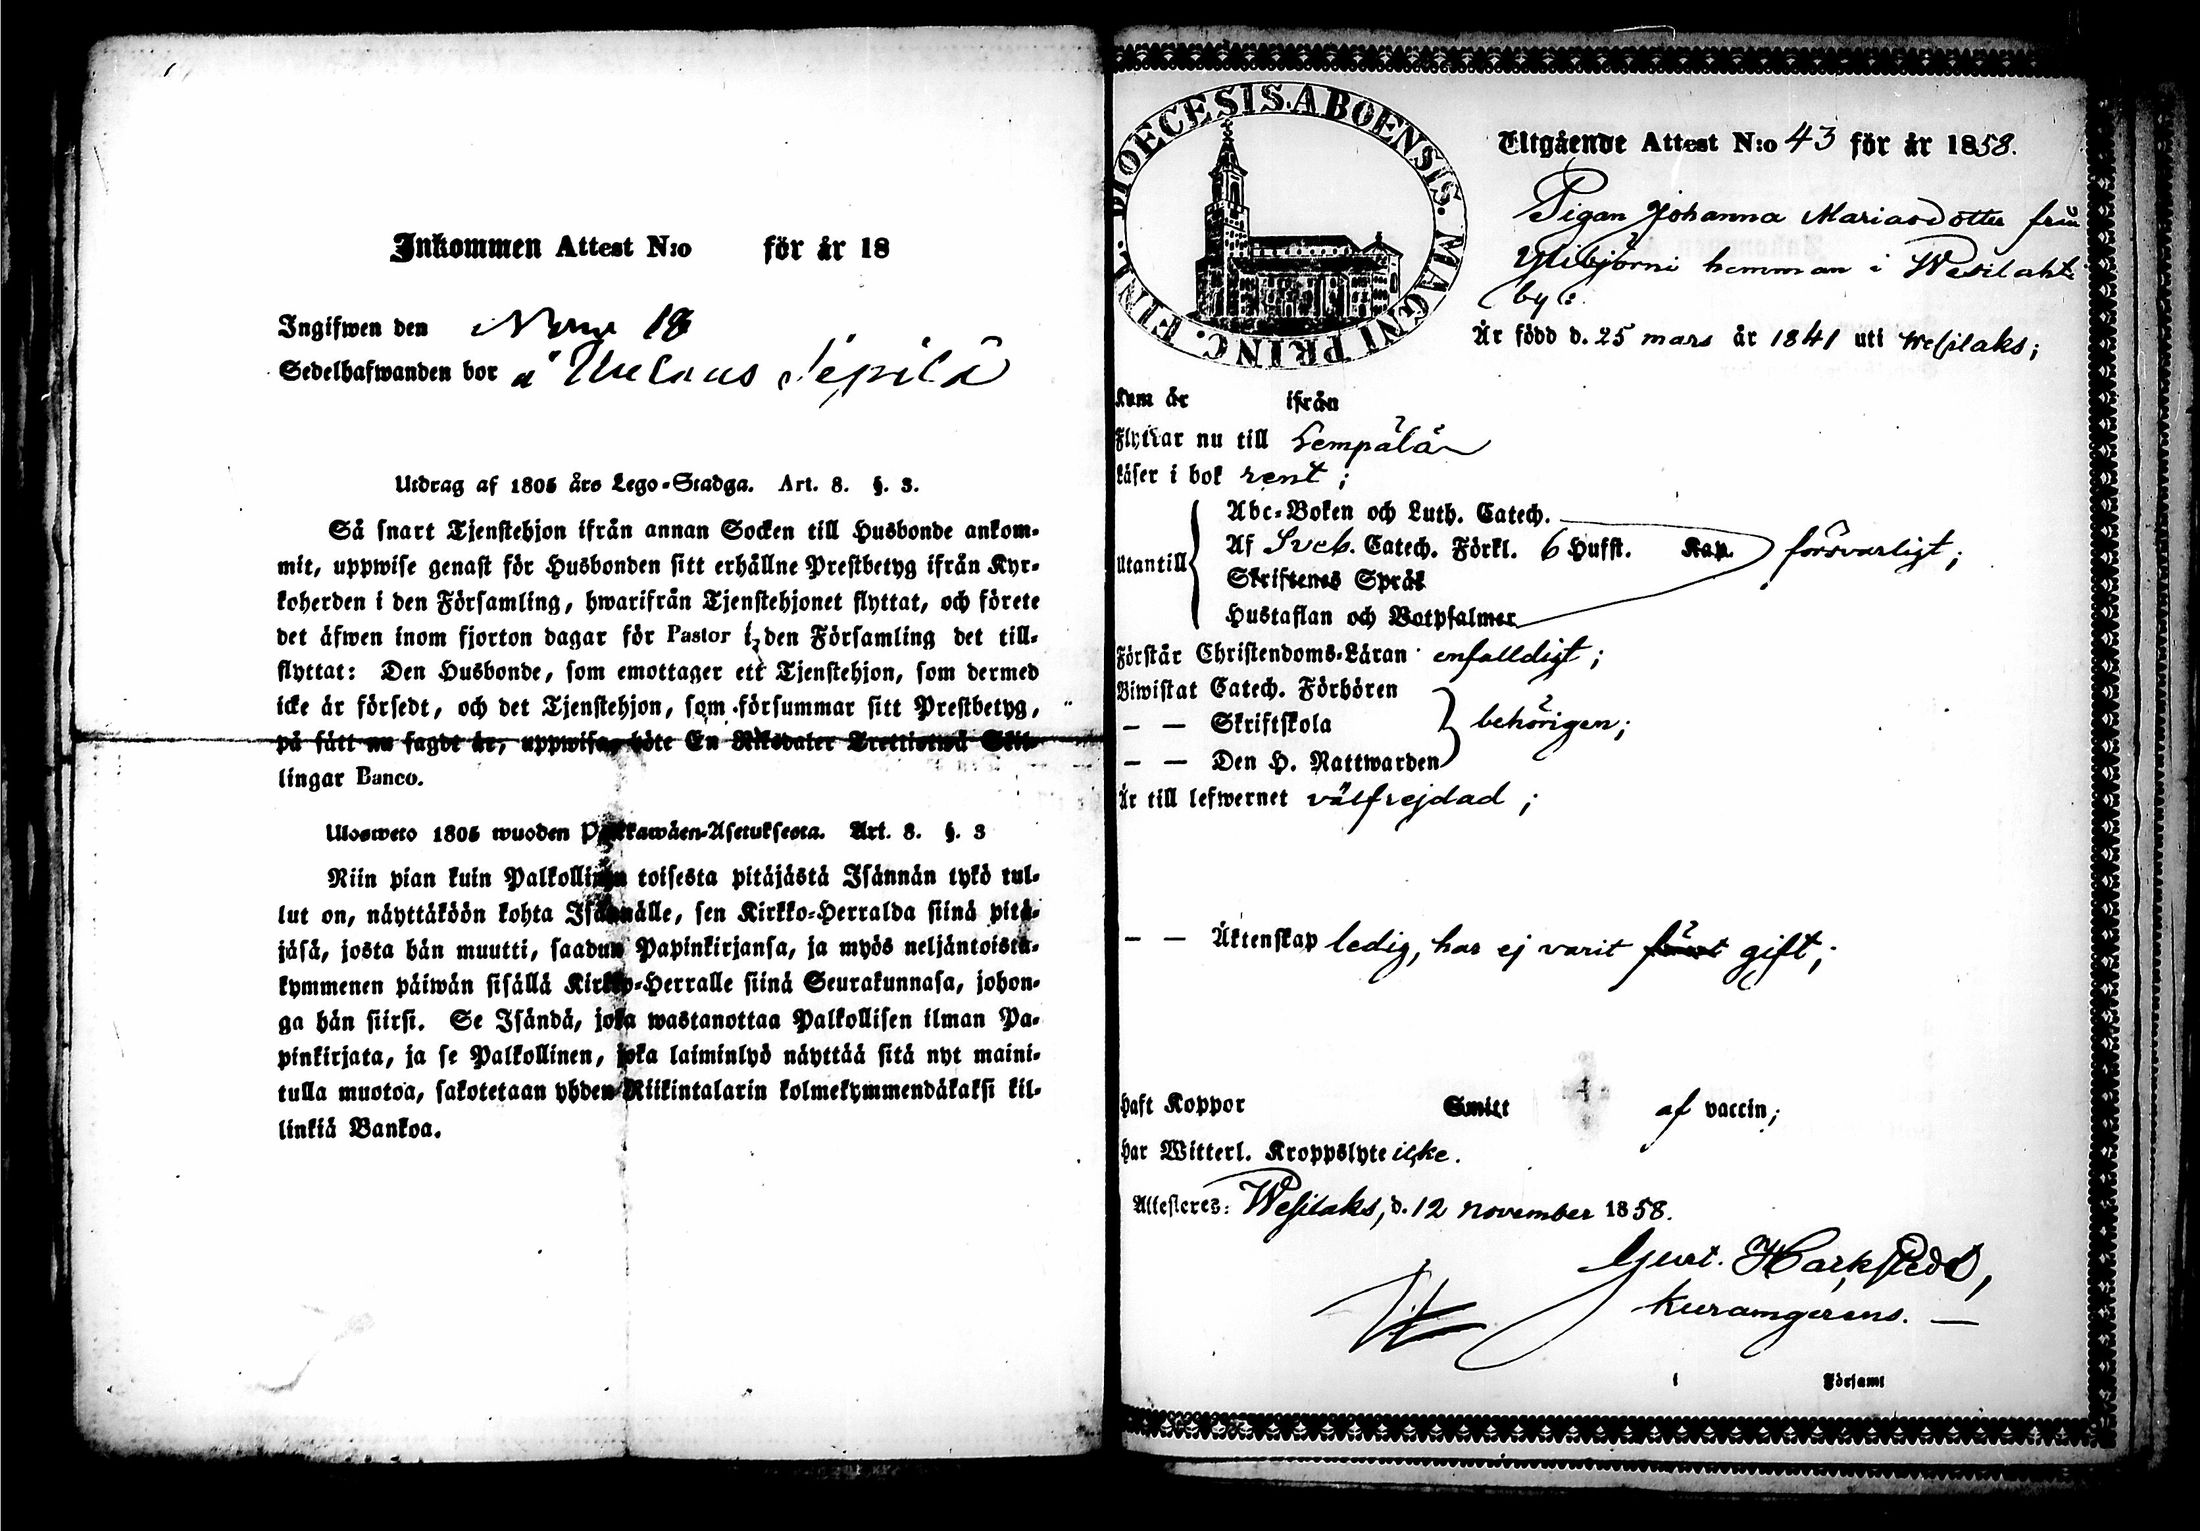 Inkommen Attest N:o för år 18
Ingifwen den Novr 18
Sedelhafwanden bor å Sepilä
Utdrag af 1805 års Lego-Stadga. Art. 8. §. 3.
Så snart Tjenstehjon ifrån annan Socken till Husbonde ankom-
mit, uppwise genast för Husbonden sitt erhållne Prestbetyg ifrån Kyr-
koherden i den Församling, hwarifrån Tjenstehjonet flyttat, och förete
det äfwen inom fjorton dagar för Pastor i den Församling det till-
flyttat: Den Husbonde, som emottager ett Tjenstehjon, som dermed
icke är försedt, och det Tjenstehjon, som försummar sitt Prestbetyg,
på sätt nu sagdt är, uppwisa, böte En Riksdaler Trettiotwå Skil-
lingar Banco.
Ulosweto 1805 wuoden Palkkawäen-Asetuksesta. Art. 8. §. 3
Niin pian kuin Palkollinen toisesta pitäjästä Isännän tykö tul-
lut on, näyttäköön kohta Isännälle, sen Kirkko-Herralda siinä pitä-
jäsä, josta hän muutti, saadun Papinkirjansa, ja myös neljäntoista-
kymmenen päiwän sisällä Kirkko-Herralle siinä Seurakunnasa, johon-
ga hän siirsi. Se Isändä, joka wastanottaa Palkollisen ilman Pa-
pinkirjata, ja se Palkollinen, joka laiminlyö näyttää sitä nyt maini-
tulla muotoa, sakotetaan yhden Riikintalarin kolmekymmendäkaksi kil-
linkiä Bankoa.
DIOECESIS. ABOENSIS. MAGNI PRINC. FINL.
Utgående Attest N:o 43 för år 1858.
Pigan Johanna Mariasdotter från
Ylibjörni hemman i Wesilaht
by:
Är född d. 25 mars år 1841 uti Wesilaks;
Kom år ifrån
Flyttar nu till Lempälä
Läser i bok rent;
Abc-Boken och Luth. Catech.
Utantill Af Sveb. Catech. Förkl. 6 Hufst. Kap. försvarligt;
Skriftenes Språk
Hustaflan och Botpsalmer
Förstår Christendoms-Läran enfalldigt;
Biwistat Catech. Förhören
— — Skriftskola behörigen;
— — Den H. Nattwarden
Är till lefwernet välfrejdad;
— — Äktenskap ledig, har ej varit gift;
Haft Koppor Smitt af vaccin;
Har Witterl. Kroppslyte icke.
Attesteres: Wesilaks, d. 12 november 1858.
Gust. Harkstedt,
kuramgerens. —
i Församl